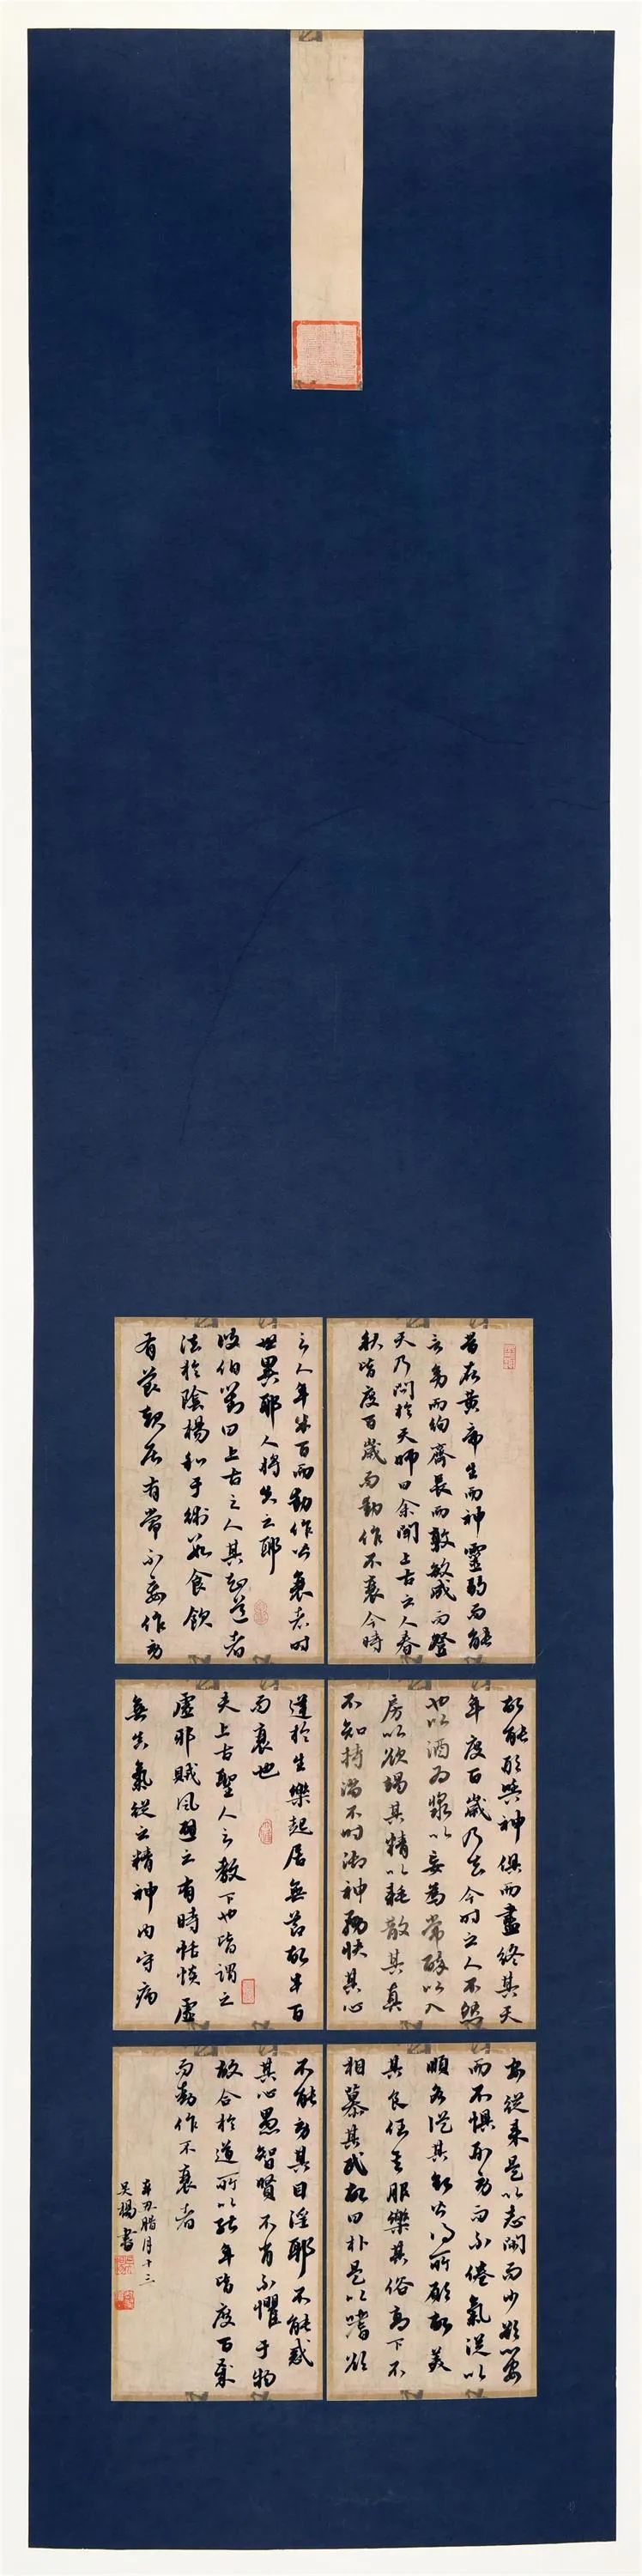 昔在黃帝生而神靈弱而能
言幼而徇齊長而敦敏成而登
天乃問於天師曰余聞上古之人春
秋皆度百歲而動作不衰今時
之人年半百而動作皆衰者時
世異耶人將失之耶
岐伯對曰上古之人其知道者
法於陰陽和于術數食飲
有節起居有常不妄作勞
故能形與神俱而盡終其天
年度百歲乃去今時之人不然
也以酒為漿以妄為常醉以入
房以欲竭其精以耗散其真
不知持滿不時御神務快其心
逆於生樂起居無節故半百
而衰也
夫上古聖人之教下也皆謂之
虛邪賊風避之有時恬惔虛
無真氣從之精神內守病
安從來是以志閑而少欲心安
而不懼形勞而不倦氣從以
順各從其欲皆得所願故美
其食任其服樂其俗高下不
相慕其民故曰朴是以嗜欲
不能勞其目淫耶不能惑
其心愚智賢不肖不懼于物
故合於道所以能年皆度百歲
而動作不衰者
辛丑臘月十三
吳楊書